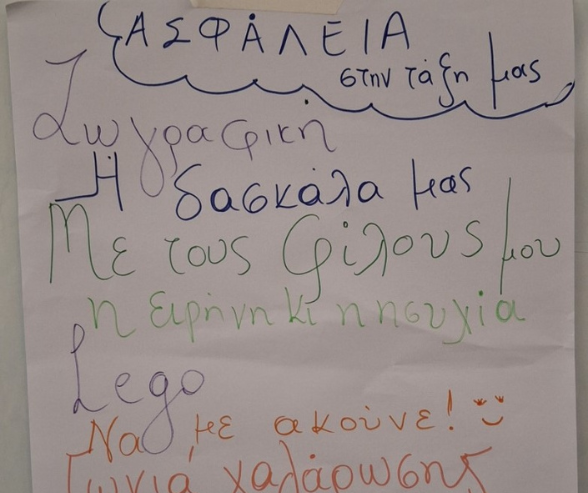 ΑΣΦΑΛΕΙΑ
στην τάξη μας
Ζωγραφική
Η δασκάλα μας
Με τους φίλους μου
η ειρήνη κι η ησυχία
Lego
Να με ακούνε!
Γωνιά χαλάρωσης